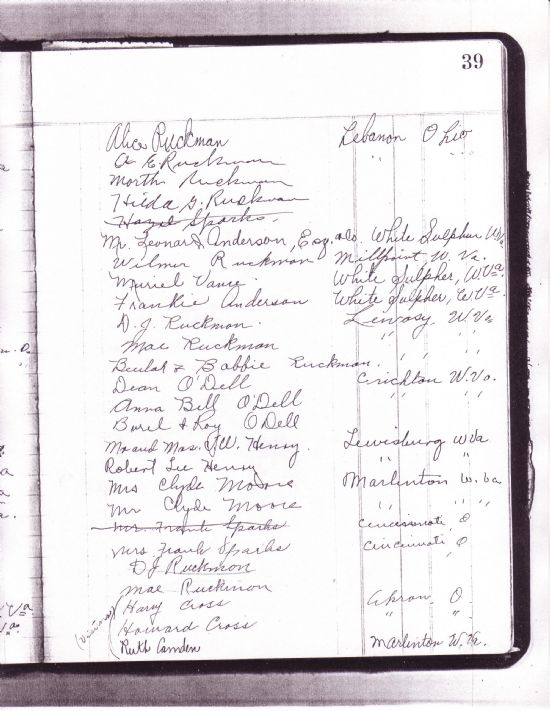 39
Alice Ruckman Lebanon Ohio
A E Ruckman " "
Ruckman
Hilda G. Ruckman
Hazel Sparks.
Mr. Leonard Anderson, Esq. White Sulphur W.Va.
Wilmer Ruckman Millpoint W. Va.
Muriel Vance White Sulpher, W.Va.
Frankie Anderson White Sulpher, W.Va.
D. J. Ruckman. Lewasy W Va
Mae Ruckman " " "
Beulah & Babbie Ruckman. " " "
Dean O'Dell Crichton W. Va.
Anna Bell O'Dell " " "
Burel & Roy O'Dell
Mr and Mrs. W. Henry. Lewisburg W Va
Robert Lee Henry " "
Mrs Clyde Moore Marlinton W. Va
Mr Clyde Moore " " "
Mr. Frank Sparks Cincinnati, O
Mrs Frank Sparks Cincinnati, O
D J Ruckman
Mae Ruckman
Harry Cross Akron O.
Howard Cross " "
Ruth Camden Marlinton W. Va.